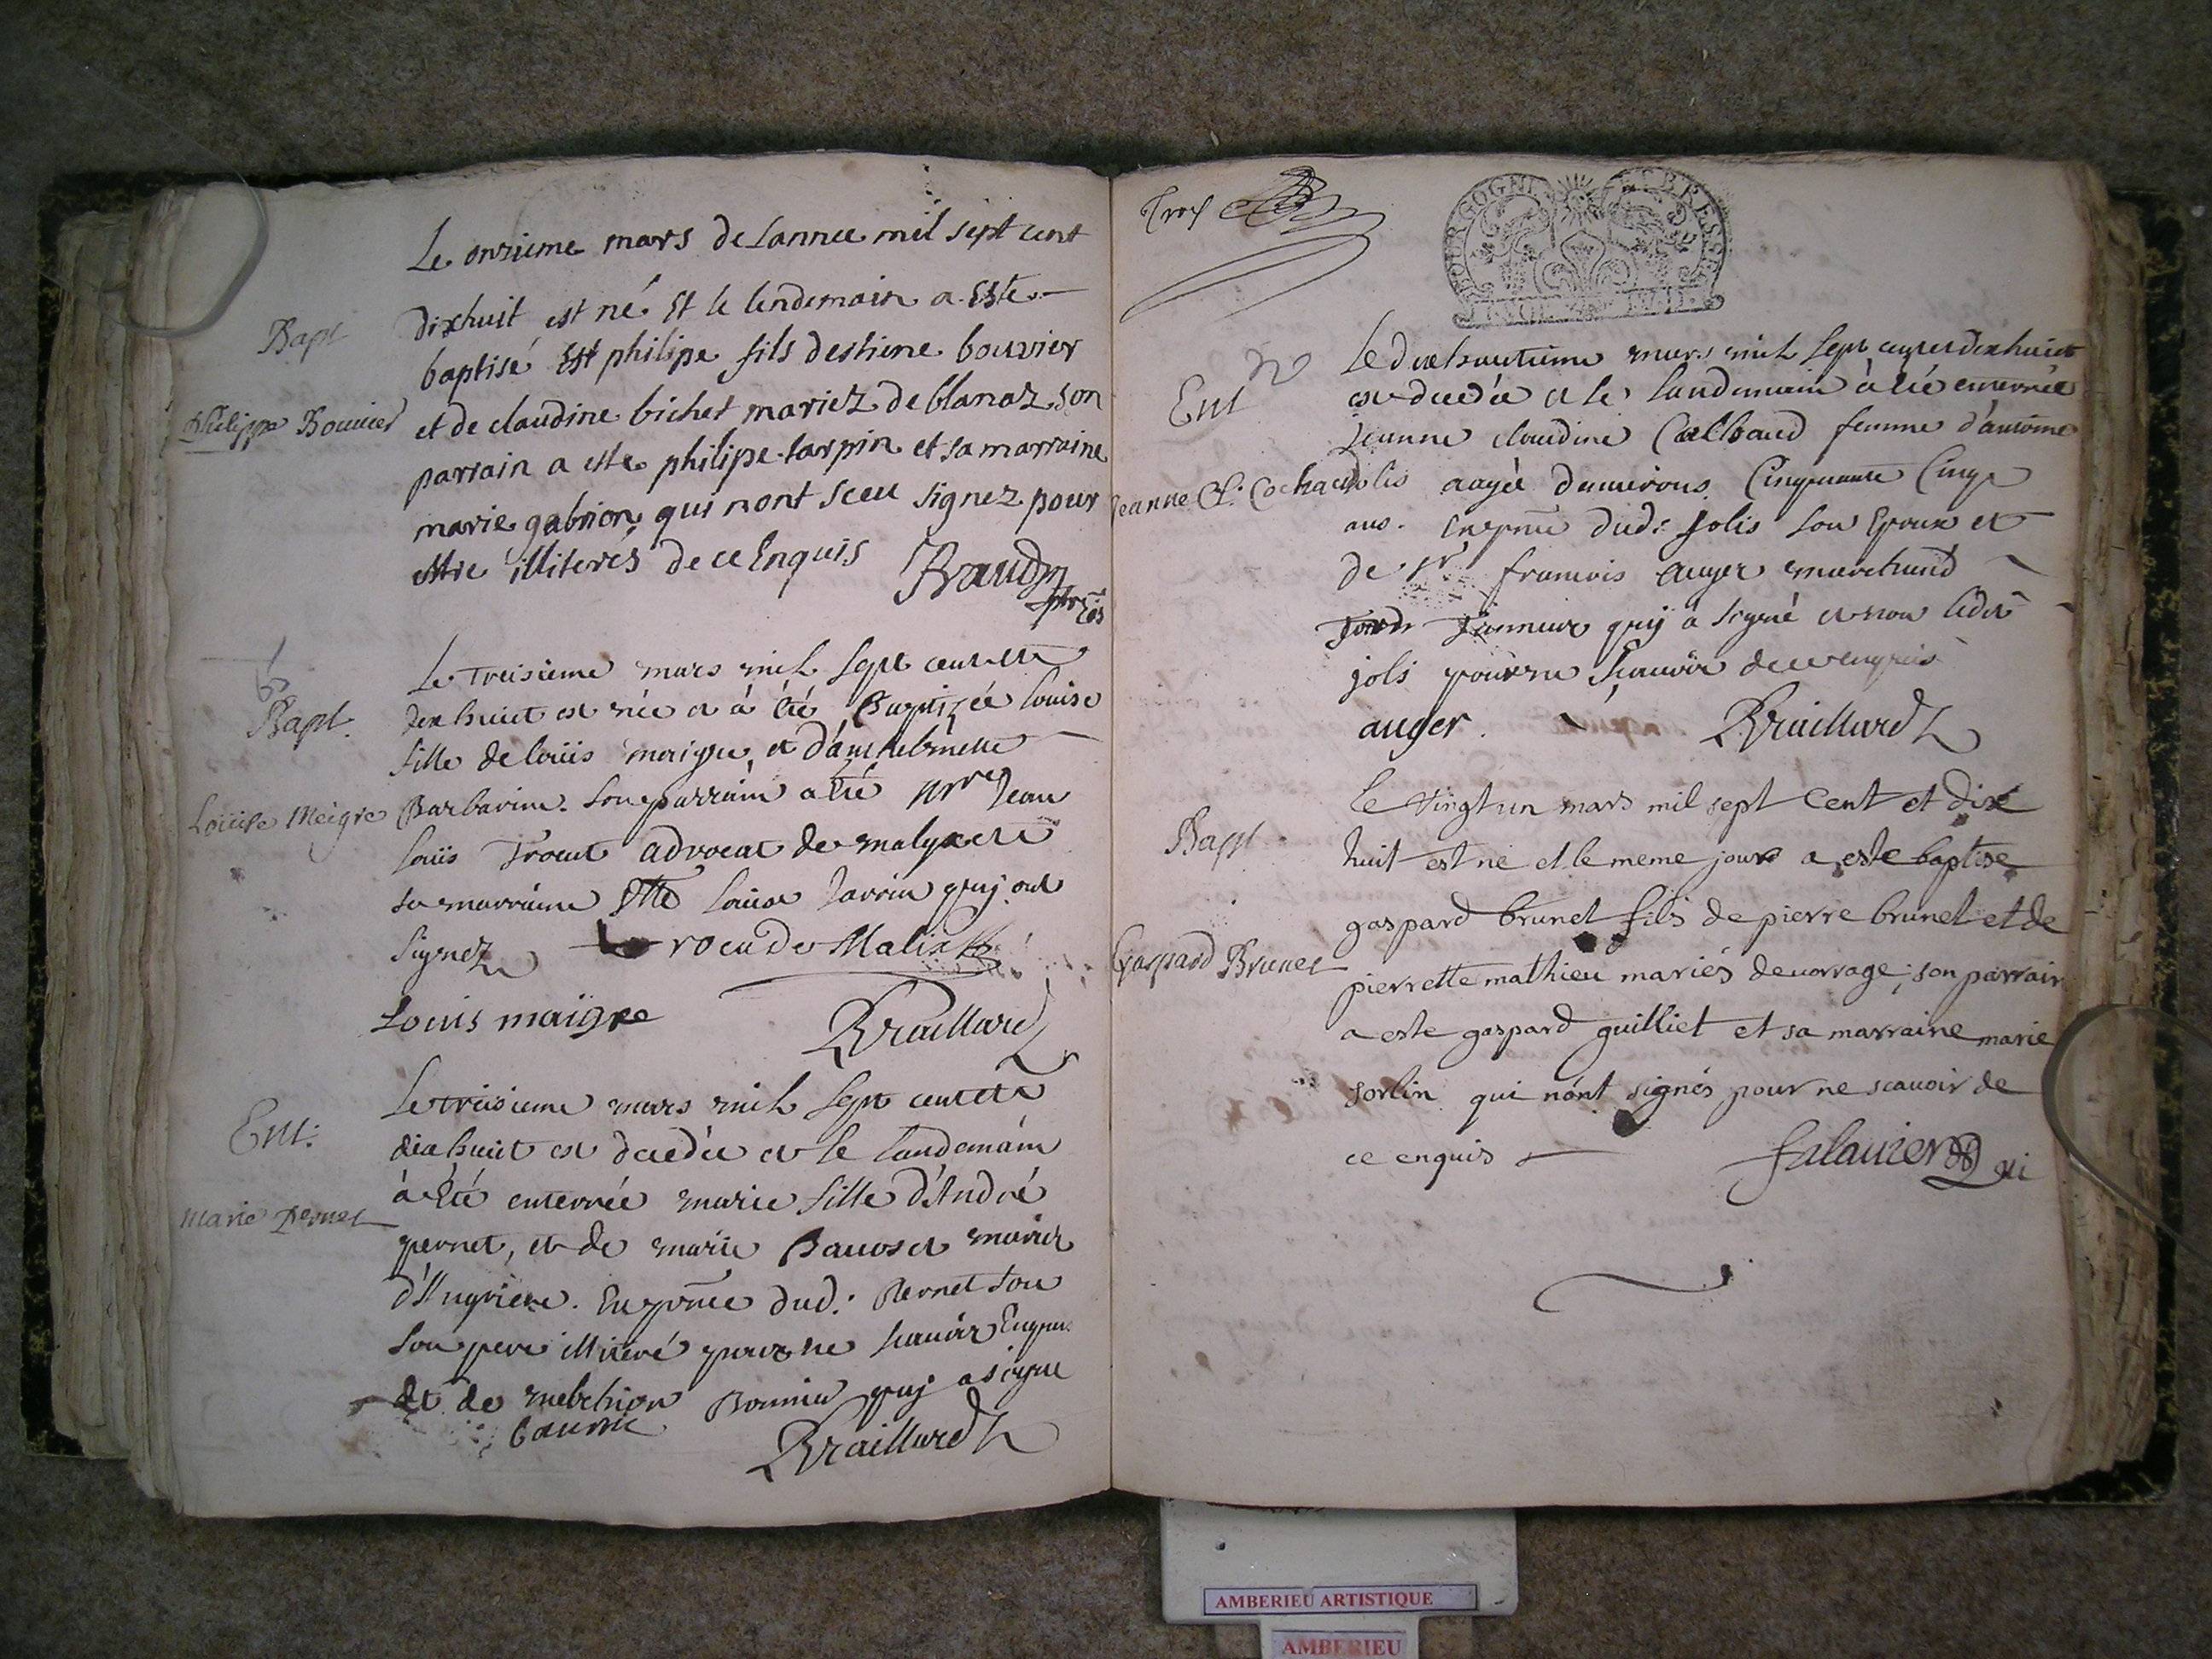 Bapt
Philippe Bouvier
Le onzieme mars de Lannee mil sept cent
dixhuit est né Et le lendemain a Este
baptisé Est philipe fils destiene bouvier
et de claudine bichet mariez de blanaz son
parrain a este philipe tarpin et sa marraine
marie gabrion, qui nont sceu signez pour
estre illiterés de ce Enquis
Bapt.
Louise Meigre
Le Treisieme mars mil Sept cent et
dixhuict est née et à été Baptizée louise
fille de loüis maigre, et d'anthelmette
Barbarin. Son parrain a été Mre Jean
loüis Trocu advocat de malix et
sa marraine Ette louise Jarrin quj ont
Signez
trocu de Malix
Louis maigre
Braillard
Ent:
Marie Pernet
Le treisieme mars mil Sept cent et
dixhuict est decedée et le landemain
à été enterrée marie fille d'André
pernet, et de marie mariez
d'Angriere. En pnce dud: Pernet Son
Son pere illiteré pour ne scauoir Enquis
et de melchion Bonnier quj a signe
Braillard
Ent
Jeanne Cl: Cochaud
Le dixhuictieme mars mil Sept cent et dixhuict
est decedée et le landemain à été enterrée
Jeanne claudine femme d'antoine
jolis aagée denuirons Cinquante Cinq
ans. en pnce dud: Jolis son Epoux et
de Sr francois auger marchand
Tanneur quj à signé et non ledit
jolis pour ne scauoir de ce enquis
auger.
Braillard
Bapt
Gaspard Brunet
Le Vingt un mars mil sept Cent et dix
huit est né et le meme jour a este baptise
gaspard brunet fils de pierre brunet et de
pierrette mathieu mariés de vorrage; son parrain
a este gaspard guilliet et sa marraine marie
sorlin qui nont signés pour ne scauoir de
ce enquis
AMBERIEU ARTISTIQUE
AMBERIEU